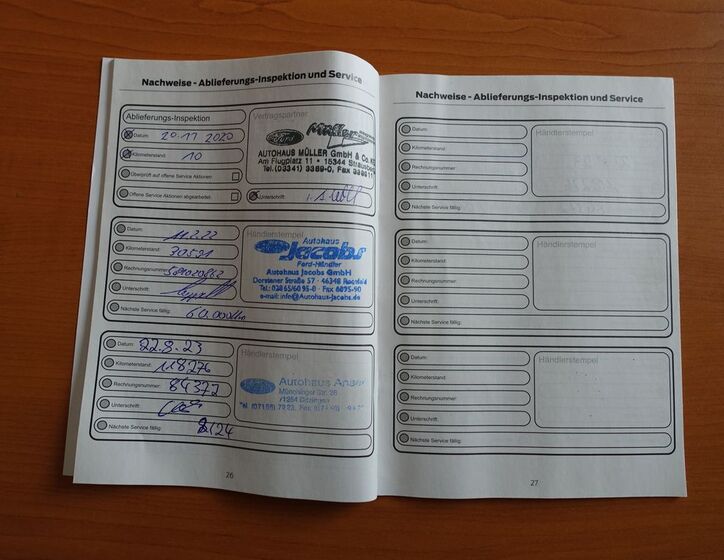 Nachweise - Ablieferungs-Inspektion und Service
Ablieferungs-Inspektion
Vertragspartner
Datum: 20.11.2020
Kilometerstand: 10
Überprüft auf offene Service Aktionen
Offene Service Aktionen abgearbeitet:
Unterschrift:
Ford
Müller
AUTOHAUS MÜLLER GmbH & Co. KG
Am Flugplatz 11 • 15344 Strausberg
Tel. (03341) 3389-0, Fax 338911
Datum: 11.2.22
Kilometerstand: 30591
Rechnungsnummer:
Unterschrift:
Nächste Service fällig: 60.000
Händlerstempel
Autohaus
Ford
Jacobs
Ford-Händler
Autohaus Jacobs GmbH
Dorstener Straße 57 · 46348 Raesfeld
Tel.: 02865/6095-0 · Fax 6095-90
e-mail: info@Autohaus-Jacobs.de
Datum: 22.8.23
Kilometerstand: 118276
Rechnungsnummer: 84372
Unterschrift:
Nächste Service fällig: 8/24
Händlerstempel
Autohaus
Münchinger Str.
71254 Ditzingen
26
Nachweise - Ablieferungs-Inspektion und Service
Datum:
Kilometerstand:
Rechnungsnummer:
Unterschrift:
Nächste Service fällig:
Händlerstempel
Datum:
Kilometerstand:
Rechnungsnummer:
Unterschrift:
Nächste Service fällig:
Händlerstempel
Datum:
Kilometerstand:
Rechnungsnummer:
Unterschrift:
Nächste Service fällig:
Händlerstempel
27